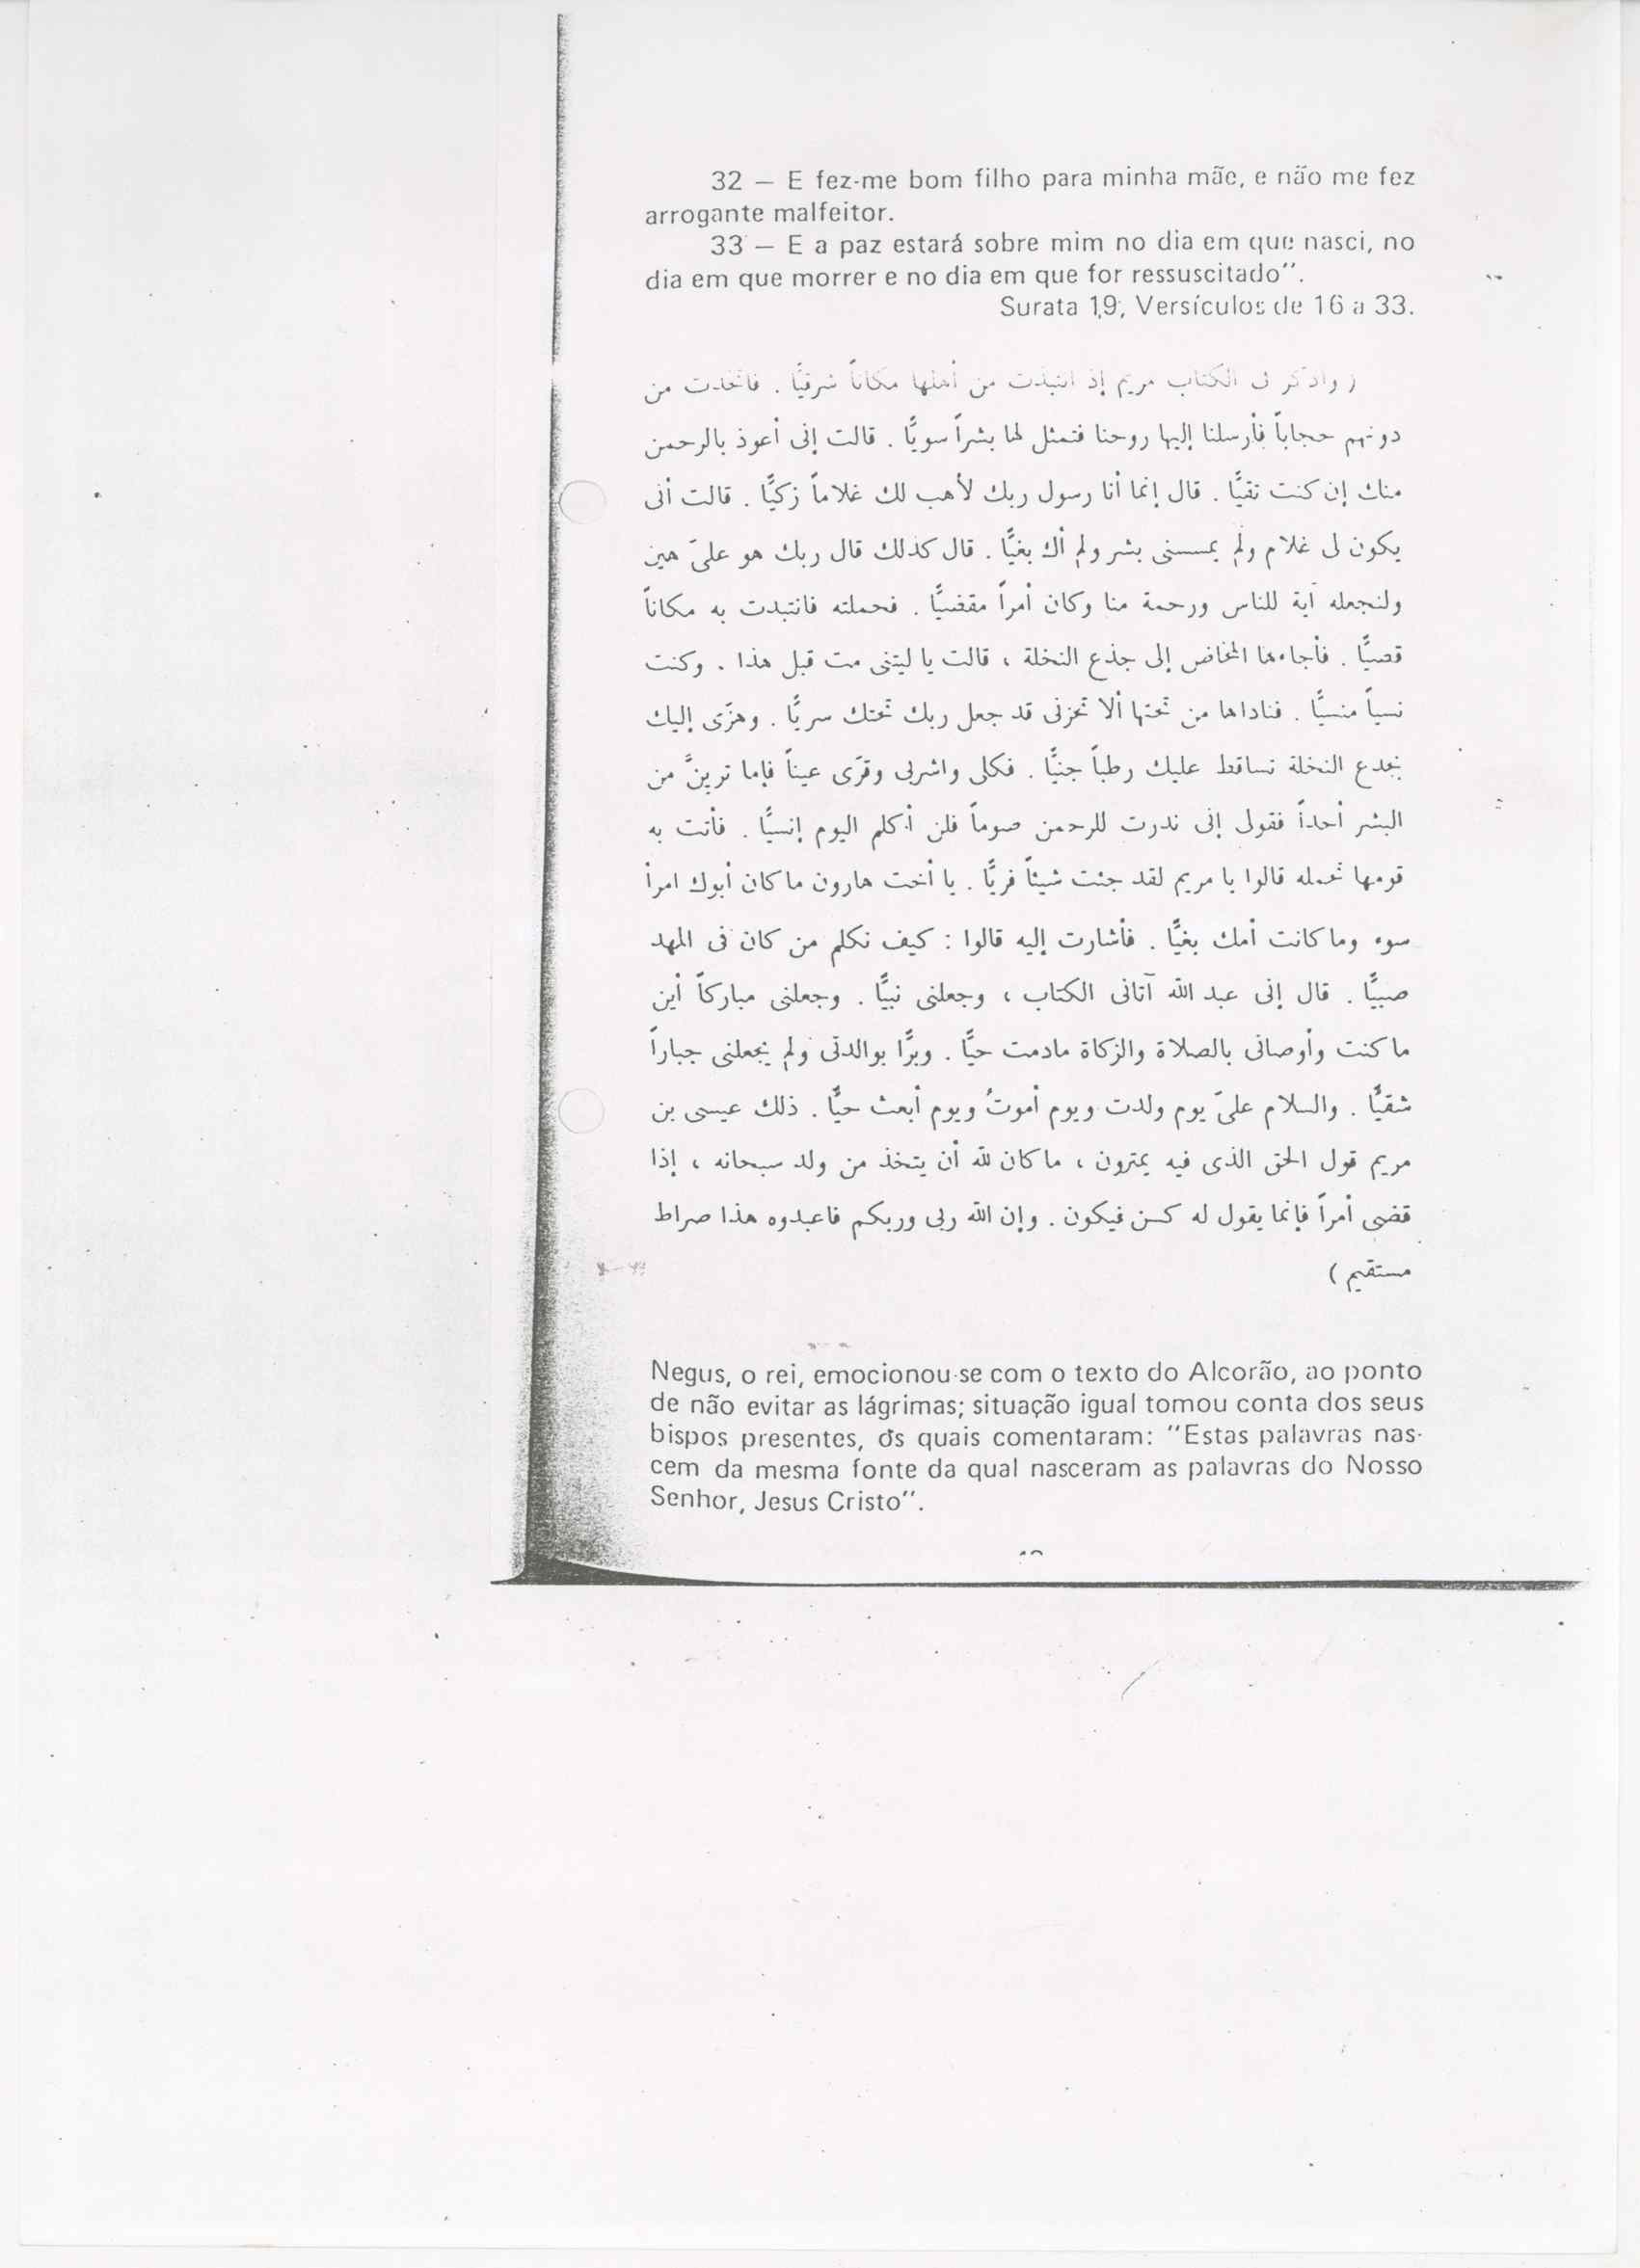 32 — E fez-me bom filho para minha mãe, e não me fez
arrogante malfeitor.
33 — E a paz estará sobre mim no dia em que nasci, no
dia em que morrer e no dia em que for ressuscitado".
Surata 19, Versículos de 16 a 33.
( واذكر فى الكتاب مريم إذ انتبذت من أهلها مكاناً شرقيًّا . فاتخذت من
دونهم حجاباً فأرسلنا إليها روحنا فتمثل لها بشراً سويًّا . قالت إنى أعوذ بالرحمن
منك إن كنت تقيًّا . قال إنما أنا رسول ربك لأهب لك غلاماً زكيًّا . قالت أنى
يكون لى غلام ولم يمسسنى بشر ولم أك بغيًّا . قال كذلك قال ربك هو علىّ هين
ولنجعله آية للناس ورحمة منا وكان أمراً مقضيًّا . فحملته فانتبذت به مكاناً
قصيًّا . فأجاءها المخاض إلى جذع النخلة ، قالت يا ليتنى مت قبل هذا . وكنت
نسياً منسيًّا . فناداها من تحتها ألا تحزنى قد جعل ربك تحتك سريًّا . وهزّى إليك
بجذع النخلة تساقط عليك رطباً جنيًّا . فكلى واشربى وقرّى عيناً فإما ترينَّ من
البشر أحداً فقولى إنى نذرت للرحمن صوماً فلن أكلم اليوم إنسيًّا . فأتت به
قومها تحمله قالوا يا مريم لقد جئت شيئاً فريًّا . يا أخت هارون ما كان أبوك امرأ
سوء وما كانت أمك بغيًّا . فأشارت إليه قالوا : كيف نكلم من كان فى المهد
صبيًّا . قال إنى عبد الله آتانى الكتاب ، وجعلنى نبيًّا . وجعلنى مباركاً أين
ما كنت وأوصانى بالصلاة والزكاة مادمت حيًّا . وبرًّا بوالدتى ولم يجعلنى جباراً
شقيًّا . والسلام علىّ يوم ولدت ويوم أموتُ ويوم أبعث حيًّا . ذلك عيسى بن
مريم قول الحق الذى فيه يمترون ، ما كان لله أن يتخذ من ولد سبحانه ، إذا
قضى أمراً فإنما يقول له كن فيكون . وإن الله ربى وربكم فاعبدوه هذا صراط
مستقيم )
Negus, o rei, emocionou-se com o texto do Alcorão, ao ponto
de não evitar as lágrimas; situação igual tomou conta dos seus
bispos presentes, os quais comentaram: "Estas palavras nas-
cem da mesma fonte da qual nasceram as palavras do Nosso
Senhor, Jesus Cristo".